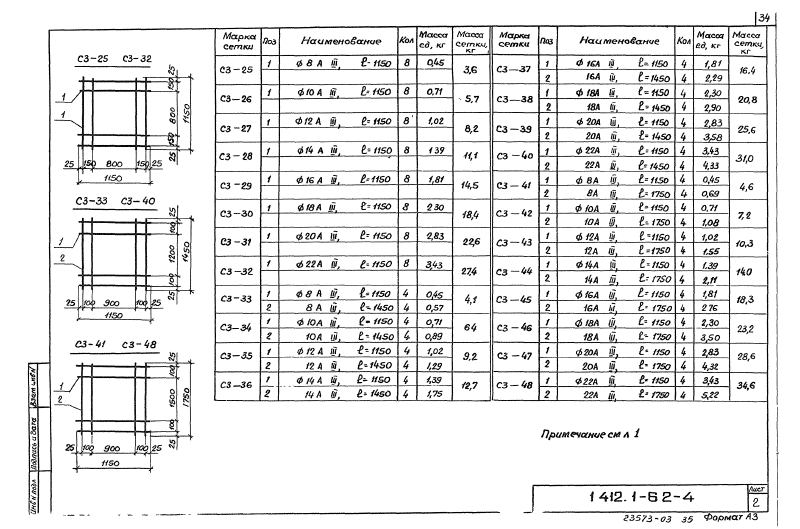 34
С3-25 С3-32
25 150 800 150 25
1150
1
1
25 150 800 150 25
1150
С3-33 С3-40
25 100 1200 100 25
1450
1
2
25 100 900 100 25
1150
С3-41 С3-48
100 1500 100 25
1750
1
2
25 100 900 100 25
1150
Марка сетки Поз Наименование Кол Масса ед, кг Масса сетки, кг
С3-25 1 Ф 8 А III, ℓ=1150 8 0,45 3,6
С3-26 1 Ф10 А III, ℓ=1150 8 0,71 5,7
С3-27 1 Ф12 А III, ℓ=1150 8 1,02 8,2
С3-28 1 Ф14 А III, ℓ=1150 8 1 39 11,1
С3-29 1 Ф16 А III, ℓ=1150 8 1,81 14,5
С3-30 1 Ф18А III, ℓ=1150 8 2 30 18,4
С3-31 1 Ф20А III, ℓ=1150 8 2,83 22,6
С3-32 1 Ф22А III, ℓ=1150 8 3,43 27,4
С3-33 1 Ф 8 А III, ℓ=1150 4 0,45 4,1
2 8 А III, ℓ=1450 4 0,57
С3-34 1 Ф10А III, ℓ=1150 4 0,71 6 4
2 10А III, ℓ=1450 4 0,89
С3-35 1 Ф 12 А III, ℓ=1150 4 1,02 9,2
2 12 А III, ℓ=1450 4 1,29
С3-36 1 Ф 14 А III, ℓ=1150 4 1,39 12,7
2 14 А III, ℓ=1450 4 1,75
Марка сетки Поз Наименование Кол Масса ед, кг Масса сетки, кг
С3-37 1 Ф 16А III, ℓ=1150 4 1,81 16.4
2 16А III, ℓ=1450 4 2,29
С3-38 1 Ф 18А III, ℓ=1150 4 2,30 20,8
2 18А III, ℓ=1450 4 2,90
С3-39 1 Ф 20А III, ℓ=1150 4 2,83 25,6
2 20А III, ℓ=1450 4 3,58
С3-40 1 Ф 22А III, ℓ=1150 4 3,43 31,0
2 22А III, ℓ=1450 4 4,33
С3-41 1 Ф 8А III, ℓ=1150 4 0,45 4,6
2 8А III, ℓ=1750 4 0,69
С3-42 1 Ф 10А III, ℓ=1150 4 0,71 7,2
2 10А III, ℓ=1750 4 1,08
С3-43 1 Ф12А III, ℓ=1150 4 1,02 10,3
2 12А III, ℓ=1750 4 1.55
С3-44 1 Ф14А III, ℓ=1150 4 1.39 14,0
2 14А III, ℓ=1750 4 2,11
С3-45 1 Ф16А III, ℓ=1150 4 1,81 18,3
2 16А III, ℓ=1750 4 2 76
С3-46 1 Ф18А III, ℓ=1150 4 2,30 23,2
2 18А III, ℓ=1750 4 3,50
С3-47 1 Ф20А III, ℓ=1150 4 2,83 28,6
2 20А III, ℓ=1750 4 4,32
С3-48 1 Ф22А III, ℓ=1150 4 3,43 34,6
2 22А III, ℓ=1750 4 5,22
Примечание см л 1
Взам инв N
Подпись и дата
Инв N подл
1 412.1-6 2-4
Лист
2
23573-03 35 Формат А3